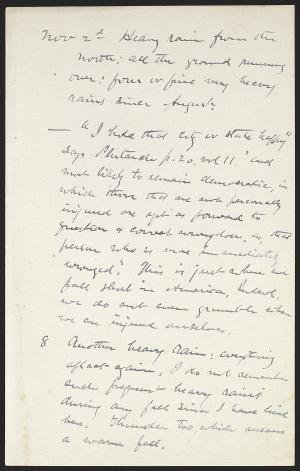 Nov 2d Heavy rain from the
north; all the ground running
over; four or five very heavy
rains since August.
— "I hold that city or state happy"
says Plutarch p. 20, vol 11. "and
most likely to remain democratic, in
which those that are not personally
injured are apt as forward to
question & correct wrongdoers, as that
person who is more immediately
wronged." This is just where we
fall short in America, Indeed,
we do not even grumble when
we are injured ourselves.
8 Another heavy rain; everything
afloat again, I do not remember
such frequent heavy rains
during any fall since I have lived
here. Thunder too, which means
a warm fall.